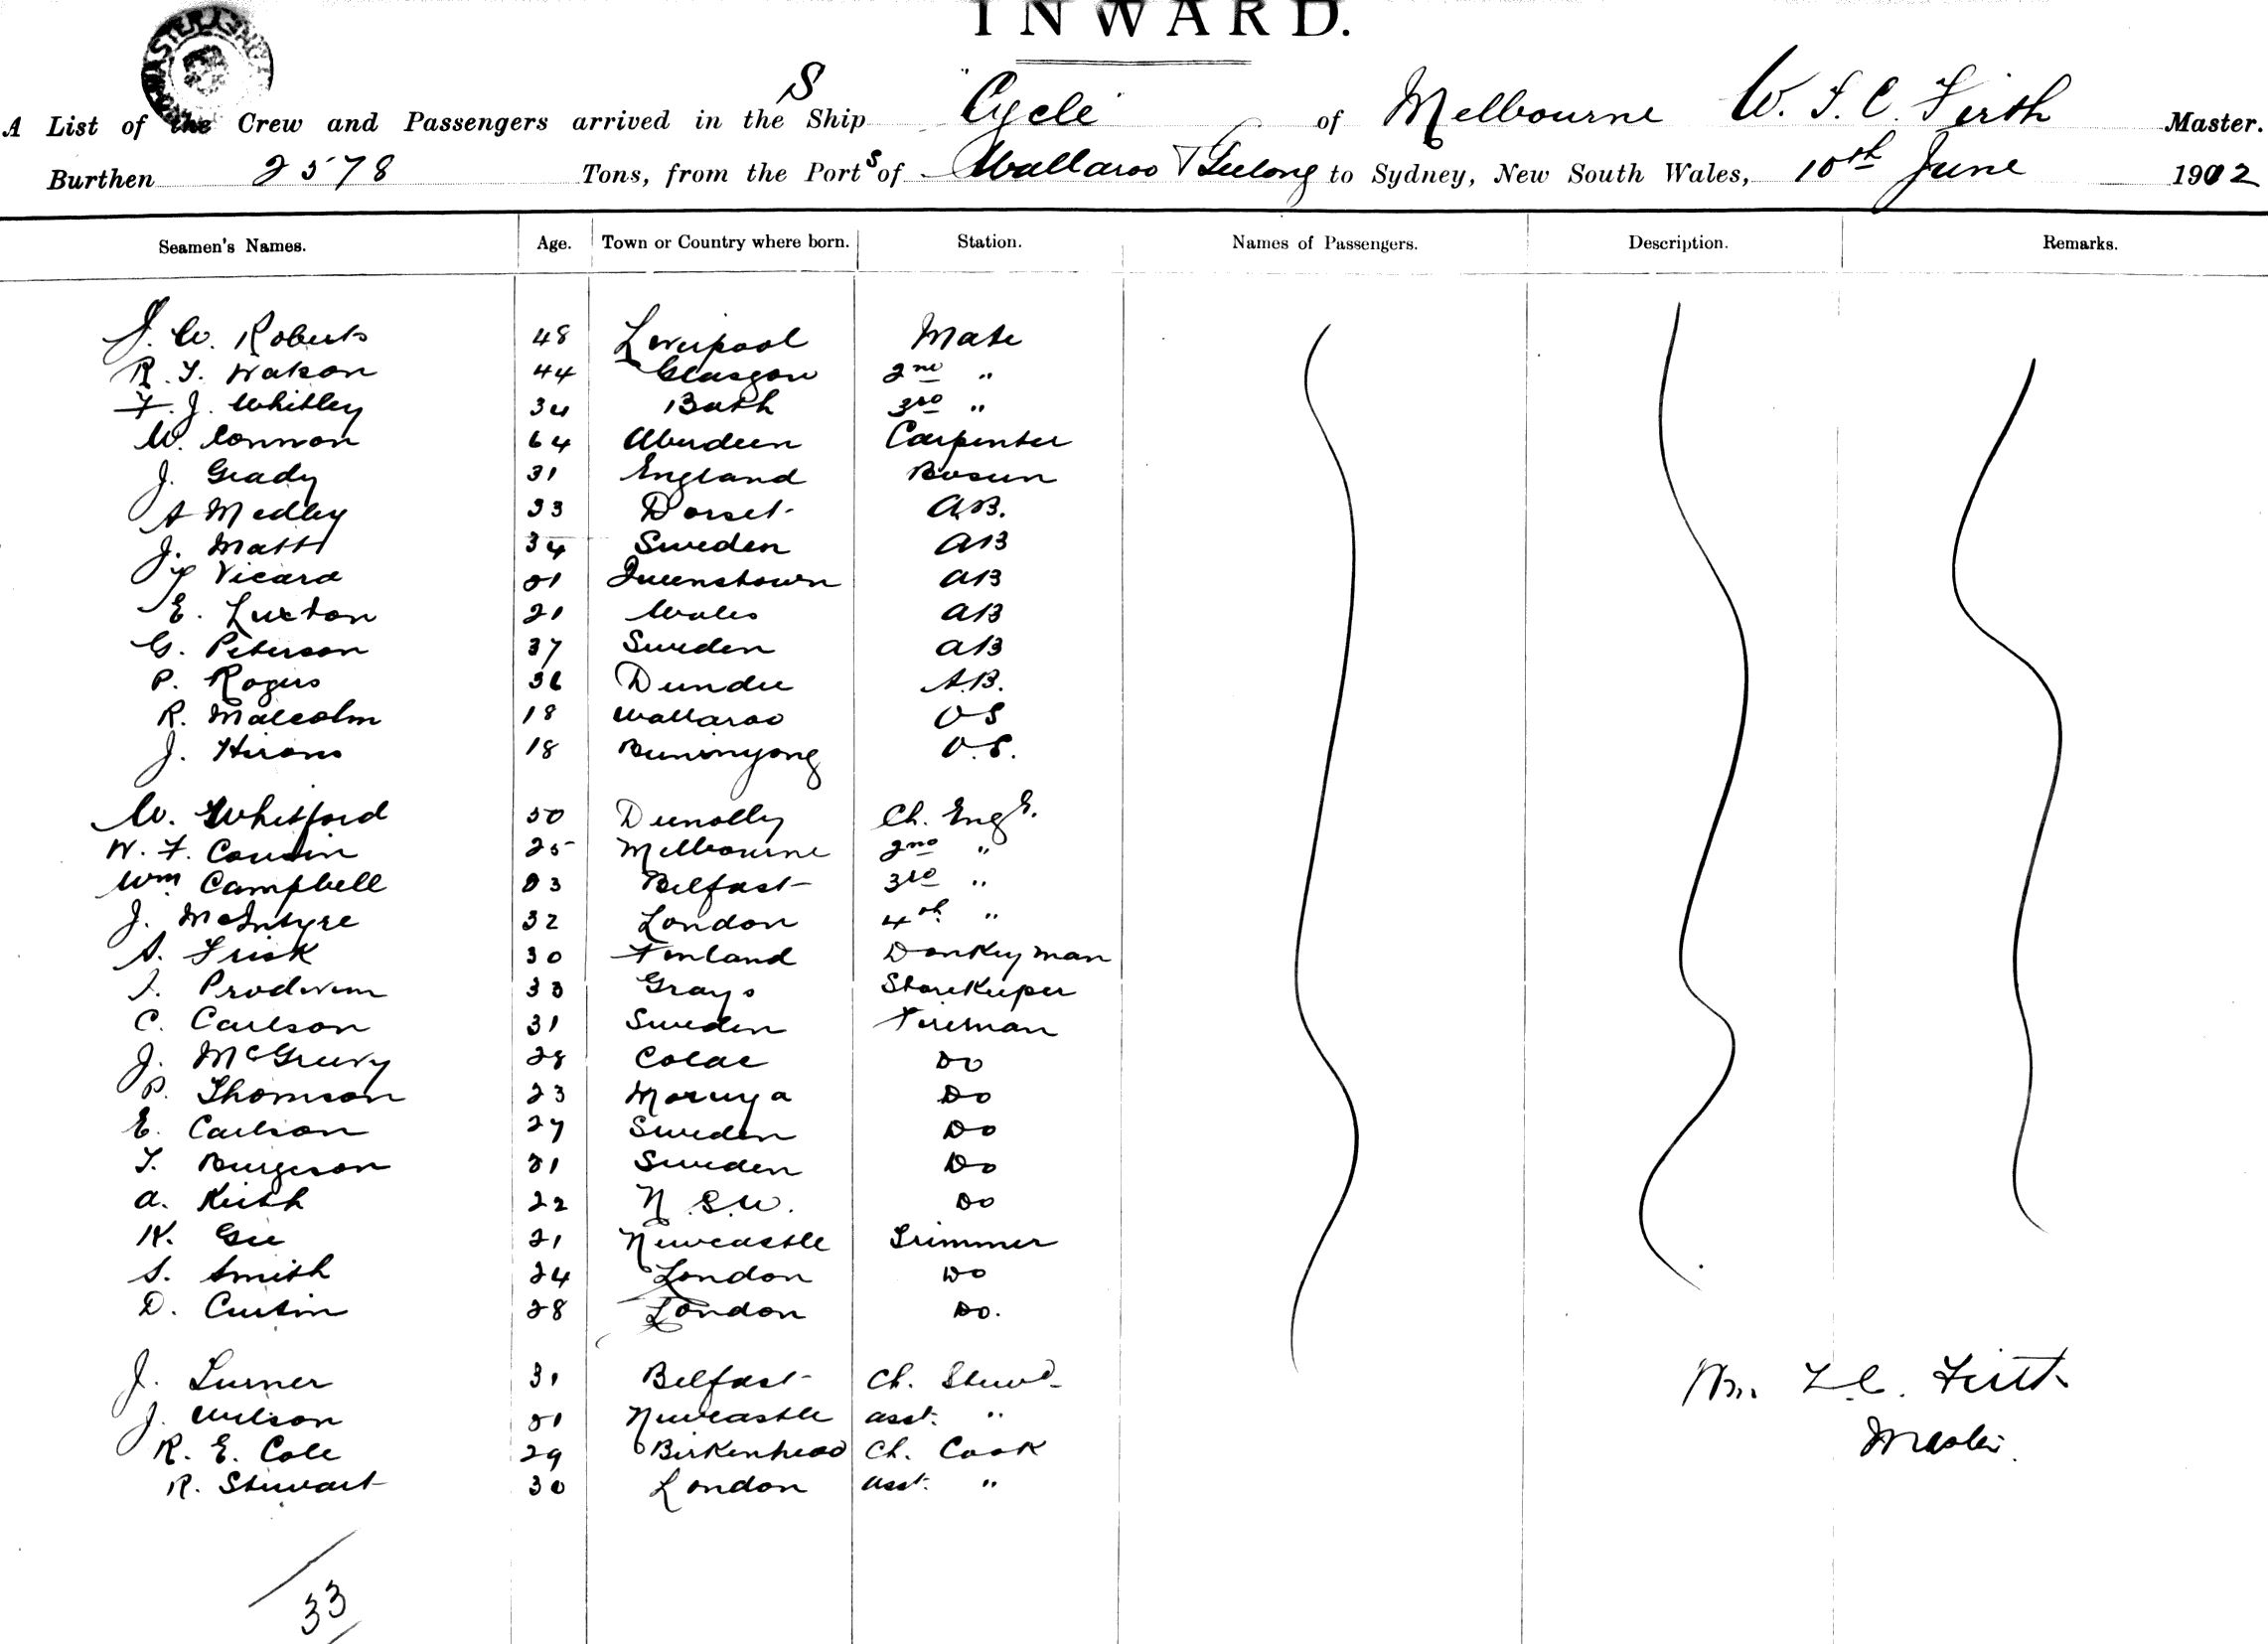 INWARD.
A List of the Crew and Passengers arrived in the S Ship "Cycle" of Melbourne W. T. C. Firth Master.
Burthen 2578 Tons, from the Ports of Wallaroo & Geelong to Sydney, New South Wales, 10th June 1902
Seamen's Names. Age. Town or Country where born. Station. Names of Passengers. Description. Remarks.
J. W. Roberts 48 Liverpool Mate
R. T. Watson 44 Glasgow 2nd "
F. J. Whitley 34 Bath 3rd "
W. Connon 64 Aberdeen Carpenter
J. Geady 31 England Bosun
A Medley 33 Dorset AB.
J. Matt 34 Sweden AB
Vicard Queenstown AB
E. Luxton 21 Wales AB
G. Peterson 37 Sweden AB
P. Rogers 36 Dundee A.B.
R. Malcolm 18 Wallaroo OS
J. Hirons 18 Buninyong O.S.
W. Whitford 50 Dunolly Ch. Engr.
W. F. Cousin 25 Melbourne 2nd "
Wm Campbell Belfast 3rd "
J. McIntyre 32 London 4th "
A. Frisk 30 Finland Donkeyman
33 Grays Storekeeper
C. Carlson 31 Sweden Fireman
J. McGreevy 28 Colac Do
P. Thomson 23 Moruya Do
E. Carlson 27 Sweden Do
T. Burgeson Sweden Do
A. Keith 22 N.S.W. Do
K. Gee 21 Newcastle Trimmer
S. Smith 24 London Do
D. Curtin 28 London Do.
J. Turner 31 Belfast Ch. Stewd
J. Wilson Newcastle asst. "
R. E. Cole 29 Birkenhead Ch. Cook
R. Stewart 30 London asst. "
Wm. T. C. Firth
Master.
33